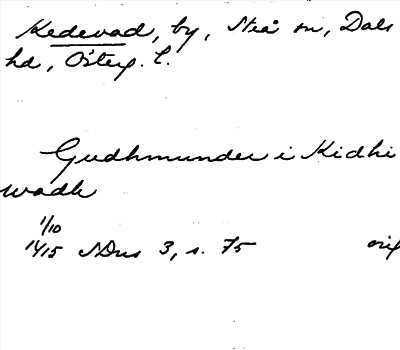 Kedevad, by, Stra sn, Dals
hd, Österg. l.
Gudhmunder i Kidhi
wadh
1/10
1415 SDns 3, s. 75 orig